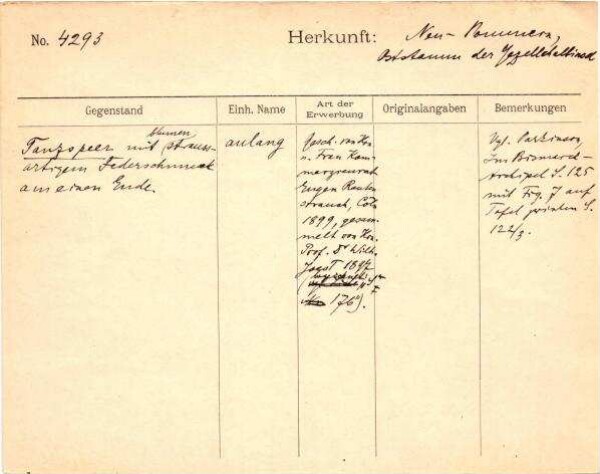 No. 4293
Herkunft: Neu-Pommern,
Oststamm der Gazellehalbinsel
Gegenstand
Einh. Name
Art der Erwerbung
Originalangaben
Bemerkungen
Tanzspeer mit blumenstrauss-
artigem Federschmuck
am einen Ende.
aulang
Gesch. von Hrn
u. Frau Kom-
merzienrat
Eugen Rauten-
strauch, Cöln
1899, gesam-
melt von Hrn.
Prof. Dr Wilh.
Joest 1897
176).
Vgl. Parkinson,
Im Bismarck-
Archipel S. 125
mit Fig. 7 auf
Tafel zwischen S.
122/3.